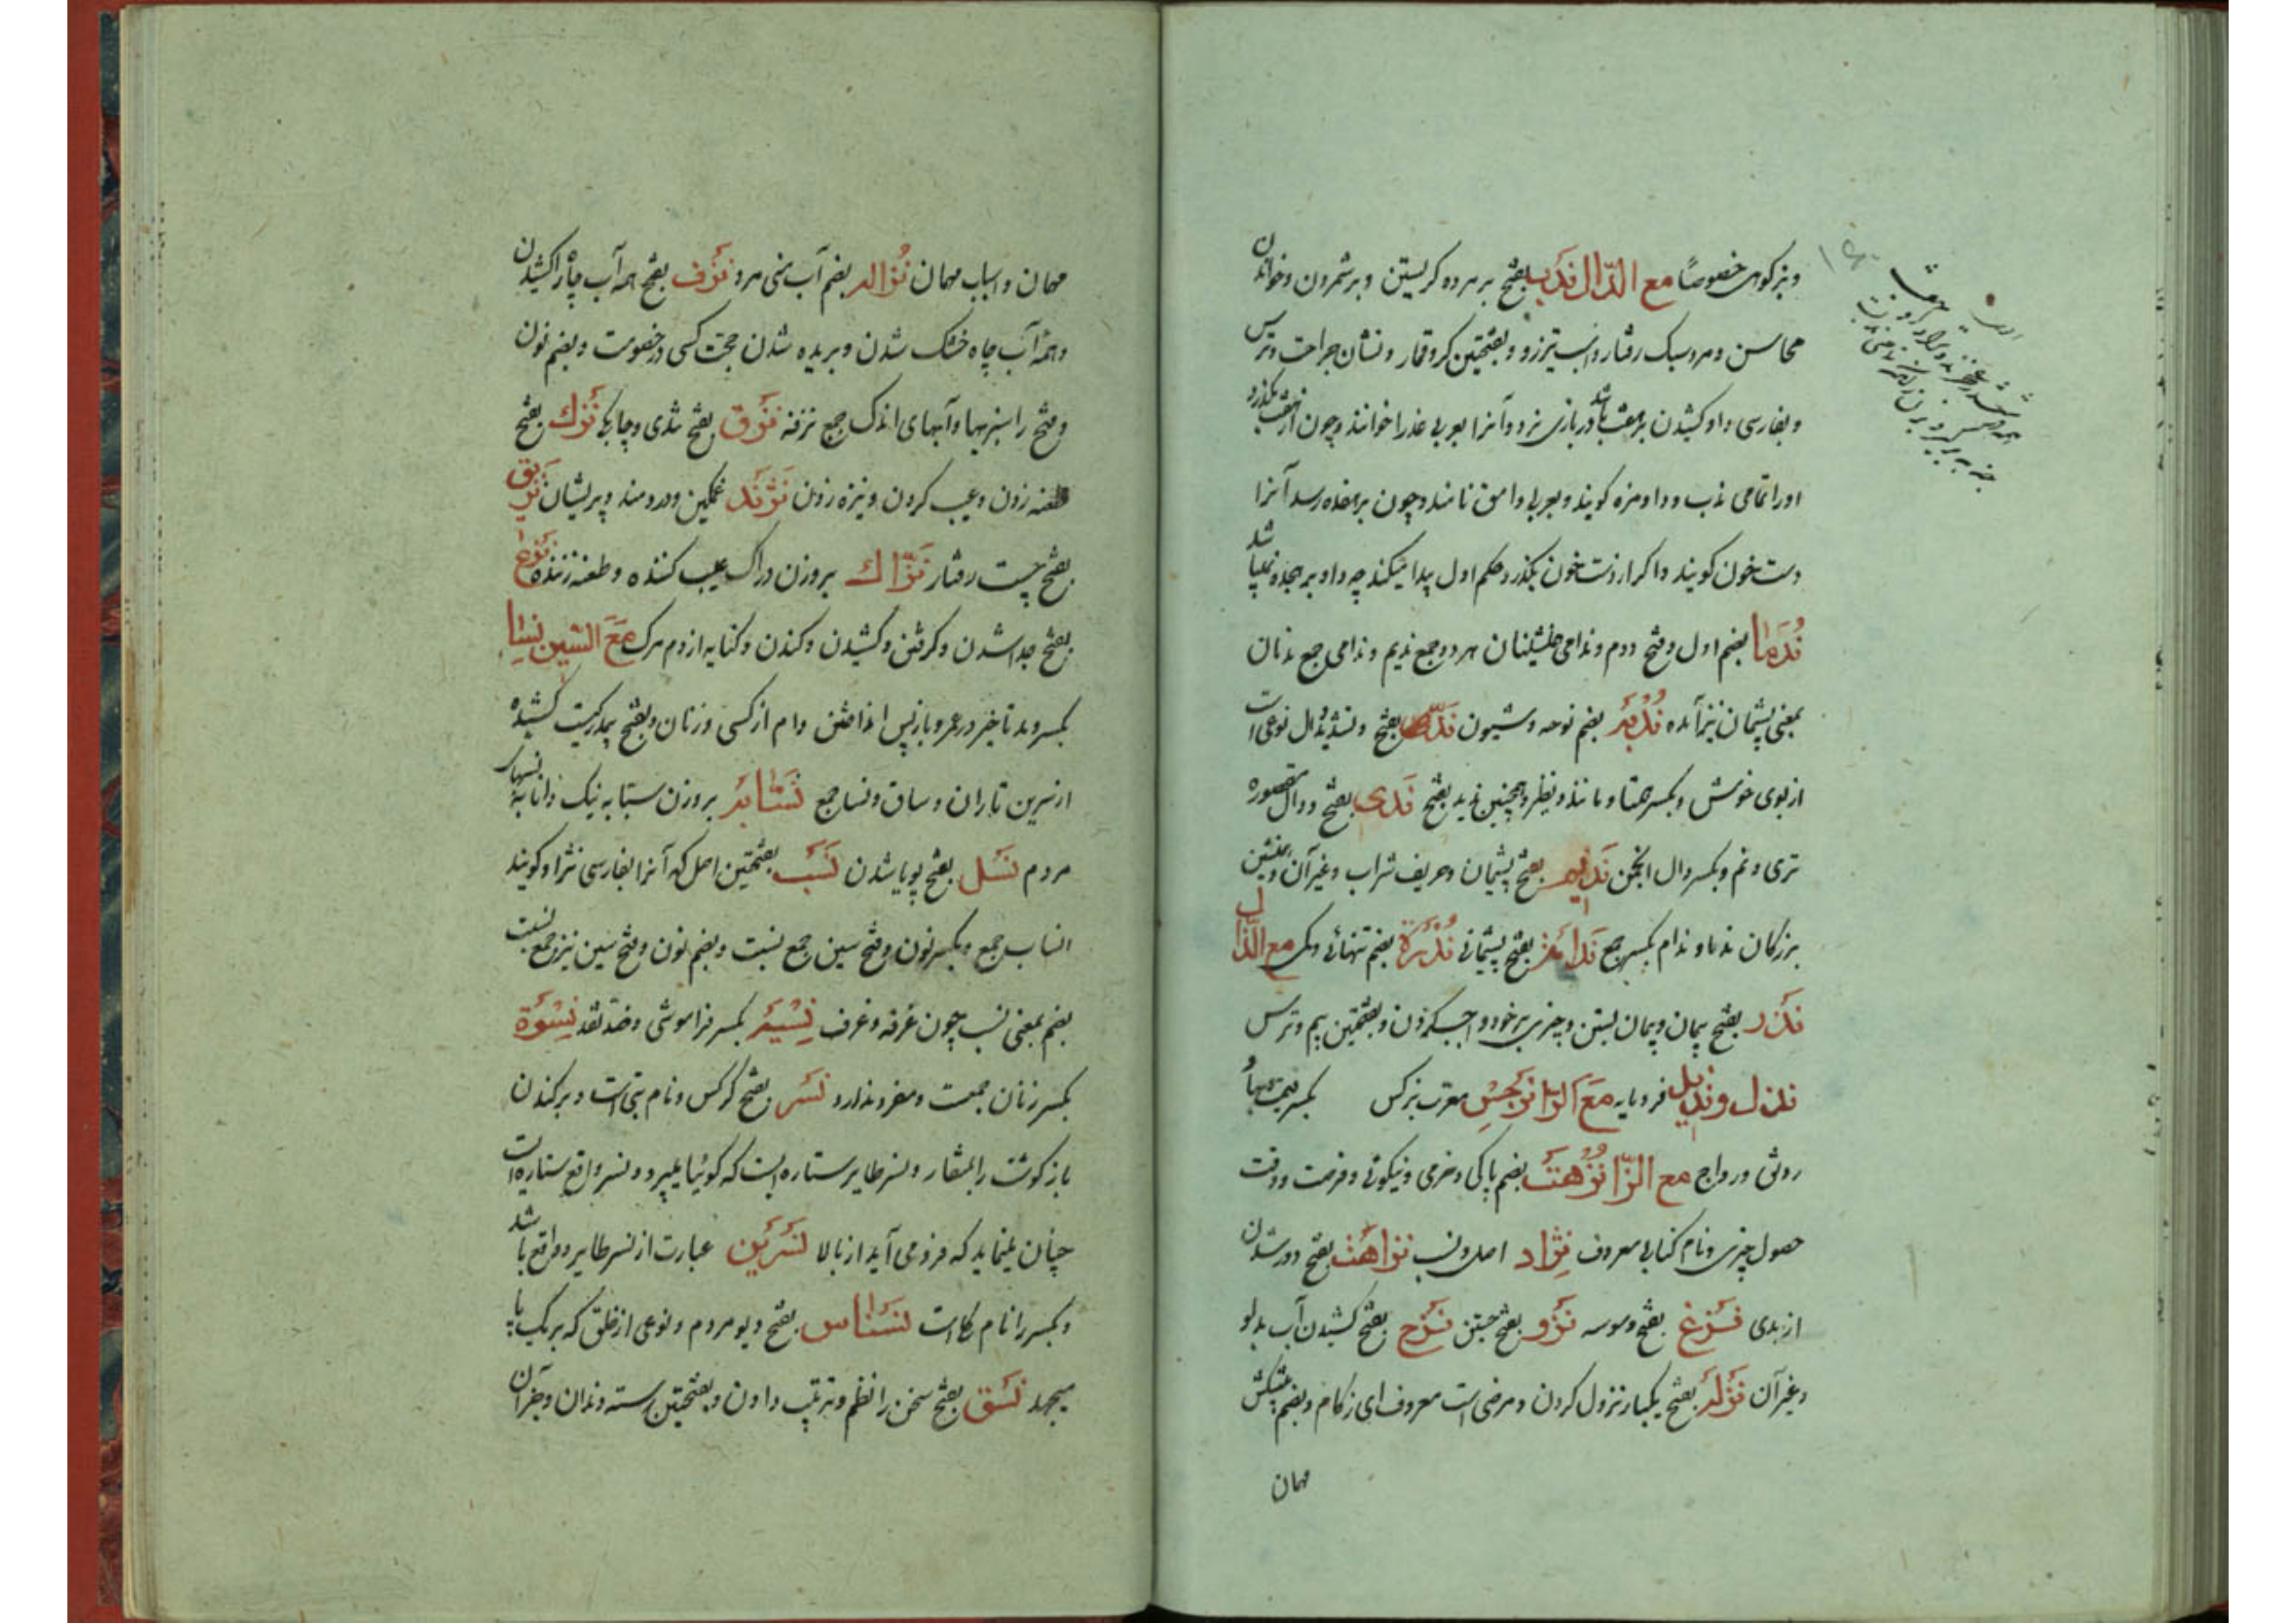 وبزکوهی خصوصًا مع الدّال ندب بفتح بر مرده کریستن و بر شمردن وخواندن
محاسن ومرد سبک رفتار واسب تیزرو و بفتحتین کرو قمار و نشان جراحت وترس
وبفارسی داو کشیدن بر هفت باشد در بازی نرد وآنرا بعربی عذرا خوانند وچون از هفت بگذرد
اورا تمامی ندب و داو مزه کویند وبعربی وامق نامند وچون بر هفده رسد آنرا
دست خون کویند واکر از دست خون بکذرد حکم اول پیدا میکند چه داو بر هجده نمیباشد
نُدَما بضم اول وفتح دوم وندامی همنشینان هر دو جمع ندیم وندامی جمع ندمان
بمعنی پشیمان نیز آمده نُدبه بضم نوحه وشیون ندّ بفتح وتشدید دال نوعی است
از بوی خوش وبکسر همتا ومانند ونظیر وهمچنین ندید بفتح ندی بفتح ودال مقصوره
تری ونم وبکسر دال انجمن ندیم بفتح پشیمان وحریف شراب وغیر آن وهمنشین
بزرکان ندما وندام بکسر جمع ندامة بفتح پشیمانی نُدرة بضم تنهائی وکمی مع الذّال
نذر بفتح پیمان وپیمان بستن وچیزی بر خود واجب کردن وبفتحتین بیم وترس
نذل ونذیل فرومایه مع الرّا نرجس معرب نرکس بکسر قیمتها
روش ورواج مع الزّا نُزهت بضم پاکی وخرمی ونیکوئی وفرصت ووقت
حصول چیزی ونام کتابی معروف نِژاد اصل ونسب نزاهت بفتح دور شدن
از بدی نزغ بفتح وسوسه نزو بفتح جستن نزح بفتح کشیدن آب بدلو
وغیر آن نزله بفتح یکبار نزول کردن ومرضی است معروف ای زکام وبضم پیشکش
مهمان
مهمان واسباب مهمان نُزاله بضم آب منی مرد نزف بفتح همه آب چاه را کشیدن
وهمه آب چاه خشک شدن وبریده شدن حجت کسی در خصومت وبضم نون
وفتح را سبزیها وآبهای اندک جمع نزفه نزق بفتح تندی وچابکی نزک بفتح
طعنه زدن وعیب کردن ونیزه زدن نژند غمکین ودردمند وپریشان نزیق
بفتح چست رفتار نزّاک بروزن دراک عیب کننده وطعنه زننده نزع
بفتح جدا شدن وکرفتن وکشیدن وکندن وکنایه از دم مرک مع السّین نسا
بکسر ومد تاخیر در عمر وبازپس انداختن وام از کسی وزنان وبفتح بیمد رکیست کشیده
از سرین تا ران وساق ونسا جمع نسّابه بروزن ستابه نیک دانا به نسبهای
مردم نسل بفتح پویا شدن نسب بفتحتین اصل که آنرا بفارسی نژاد کویند
انساب جمع وبکسر نون وفتح سین جمع نسبت وبضم نون وفتح سین نیز جمع نسبت
بضم بمعنی نسب چون غرفه وغرف نسیه بکسر فراموشی وضد نقد نِسوَة
بکسر زنان جمعست ومفرد ندارد نسر بفتح کرکس ونام بتی است وبرکندن
باز کوشت را بمنقار ونسر طایر ستاره ایست که کوئیا میپرد ونسر واقع ستاره است
چنان مینماید که فرود می آید از بالا نسرین عبارت از نسر طایر وواقع باشد
وبکسر را نام کلی است نسناس بفتح دیو مردم ونوعی از خلق که بر یک پا
میجهد نسق بفتح سخن را نظم وترتیب دادن وبفتحتین رسته دندان وجز آن